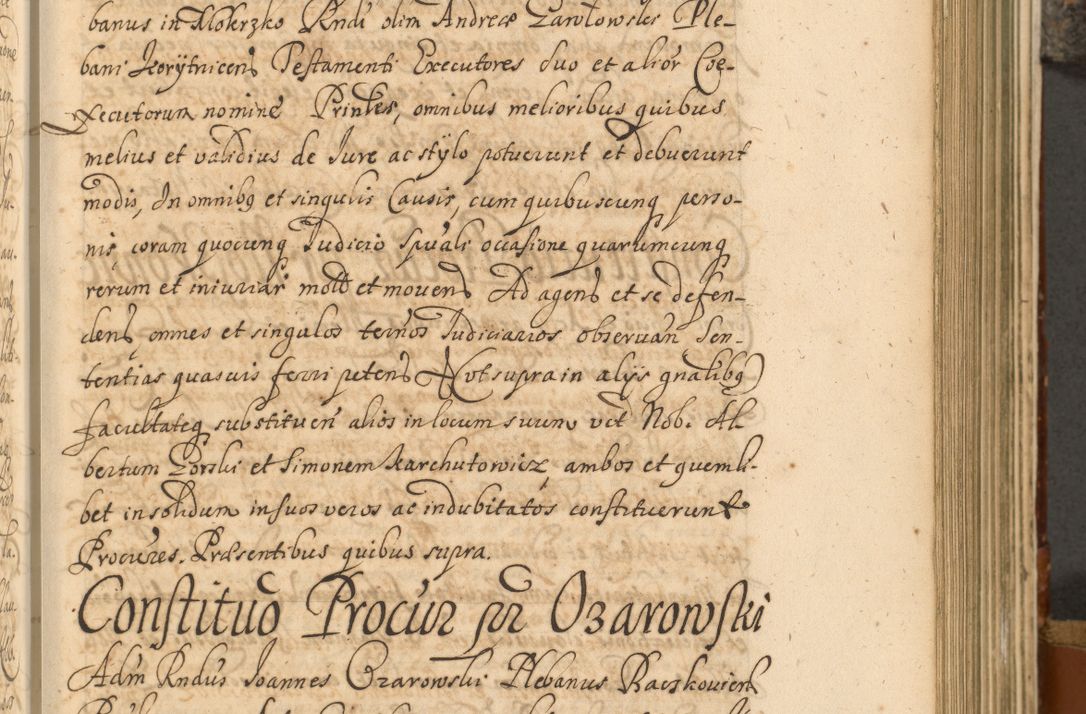 banus in Mokrzko Rndi olim Andreæ Zawłowski Ple-
bani Korytnicens Testamenti Executores suo et alior Coe-
xecutorum nomine Printes, omnibus melioribus quibus
melius et validius de Jure ac stylo potuerunt et debuerunt
modis, In omnibq et singulis Causis, cum quibuscunq perso-
nis, coram quocunq Judicio Spuali occasione quarumcunq
rerum et iniuriar mott et movens Ad agens et se defen-
dens, omnes et singulos termos Judiciarios observan Sen-
tentias quasvis ferri petens et ut supra in alijs gnalibq
facultateq substituen alios in locum suum vct Nob. Al-
bertum Gorski et Simonem Karchutowicz ambos et quemli-
bet in solidum in suos veros ac indubitatos constituerunt
Procures. Præsentibus quibus supra.
Constituo Procur pr Ozarowski
Adm Rndus Joannes Ozarowski Plebanus Raczkoviens